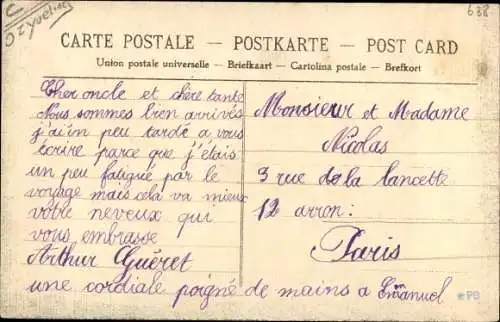 638
CARTE POSTALE — POSTKARTE — POST CARD
Union postale universelle – Briefkaart – Cartolina postale – Brefkort
Cher oncle et chère tante
Nous sommes bien arrivés
j'ai un peu tardé a vous
écrire parce que j'étais
un peu fatigué par le
voyage mais cela va mieux
votre neveux qui
vous embrasse
Arthur Guéret
une cordiale poigné de mains a Emanuel
Monsieur et Madame
Nicolas
3 rue de la lancette
12 arron:
Paris
PB